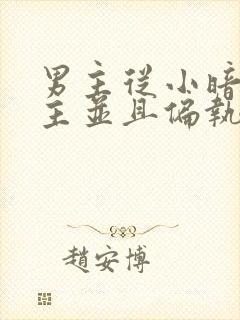 男主從小暗
主並且偏執
趙安博